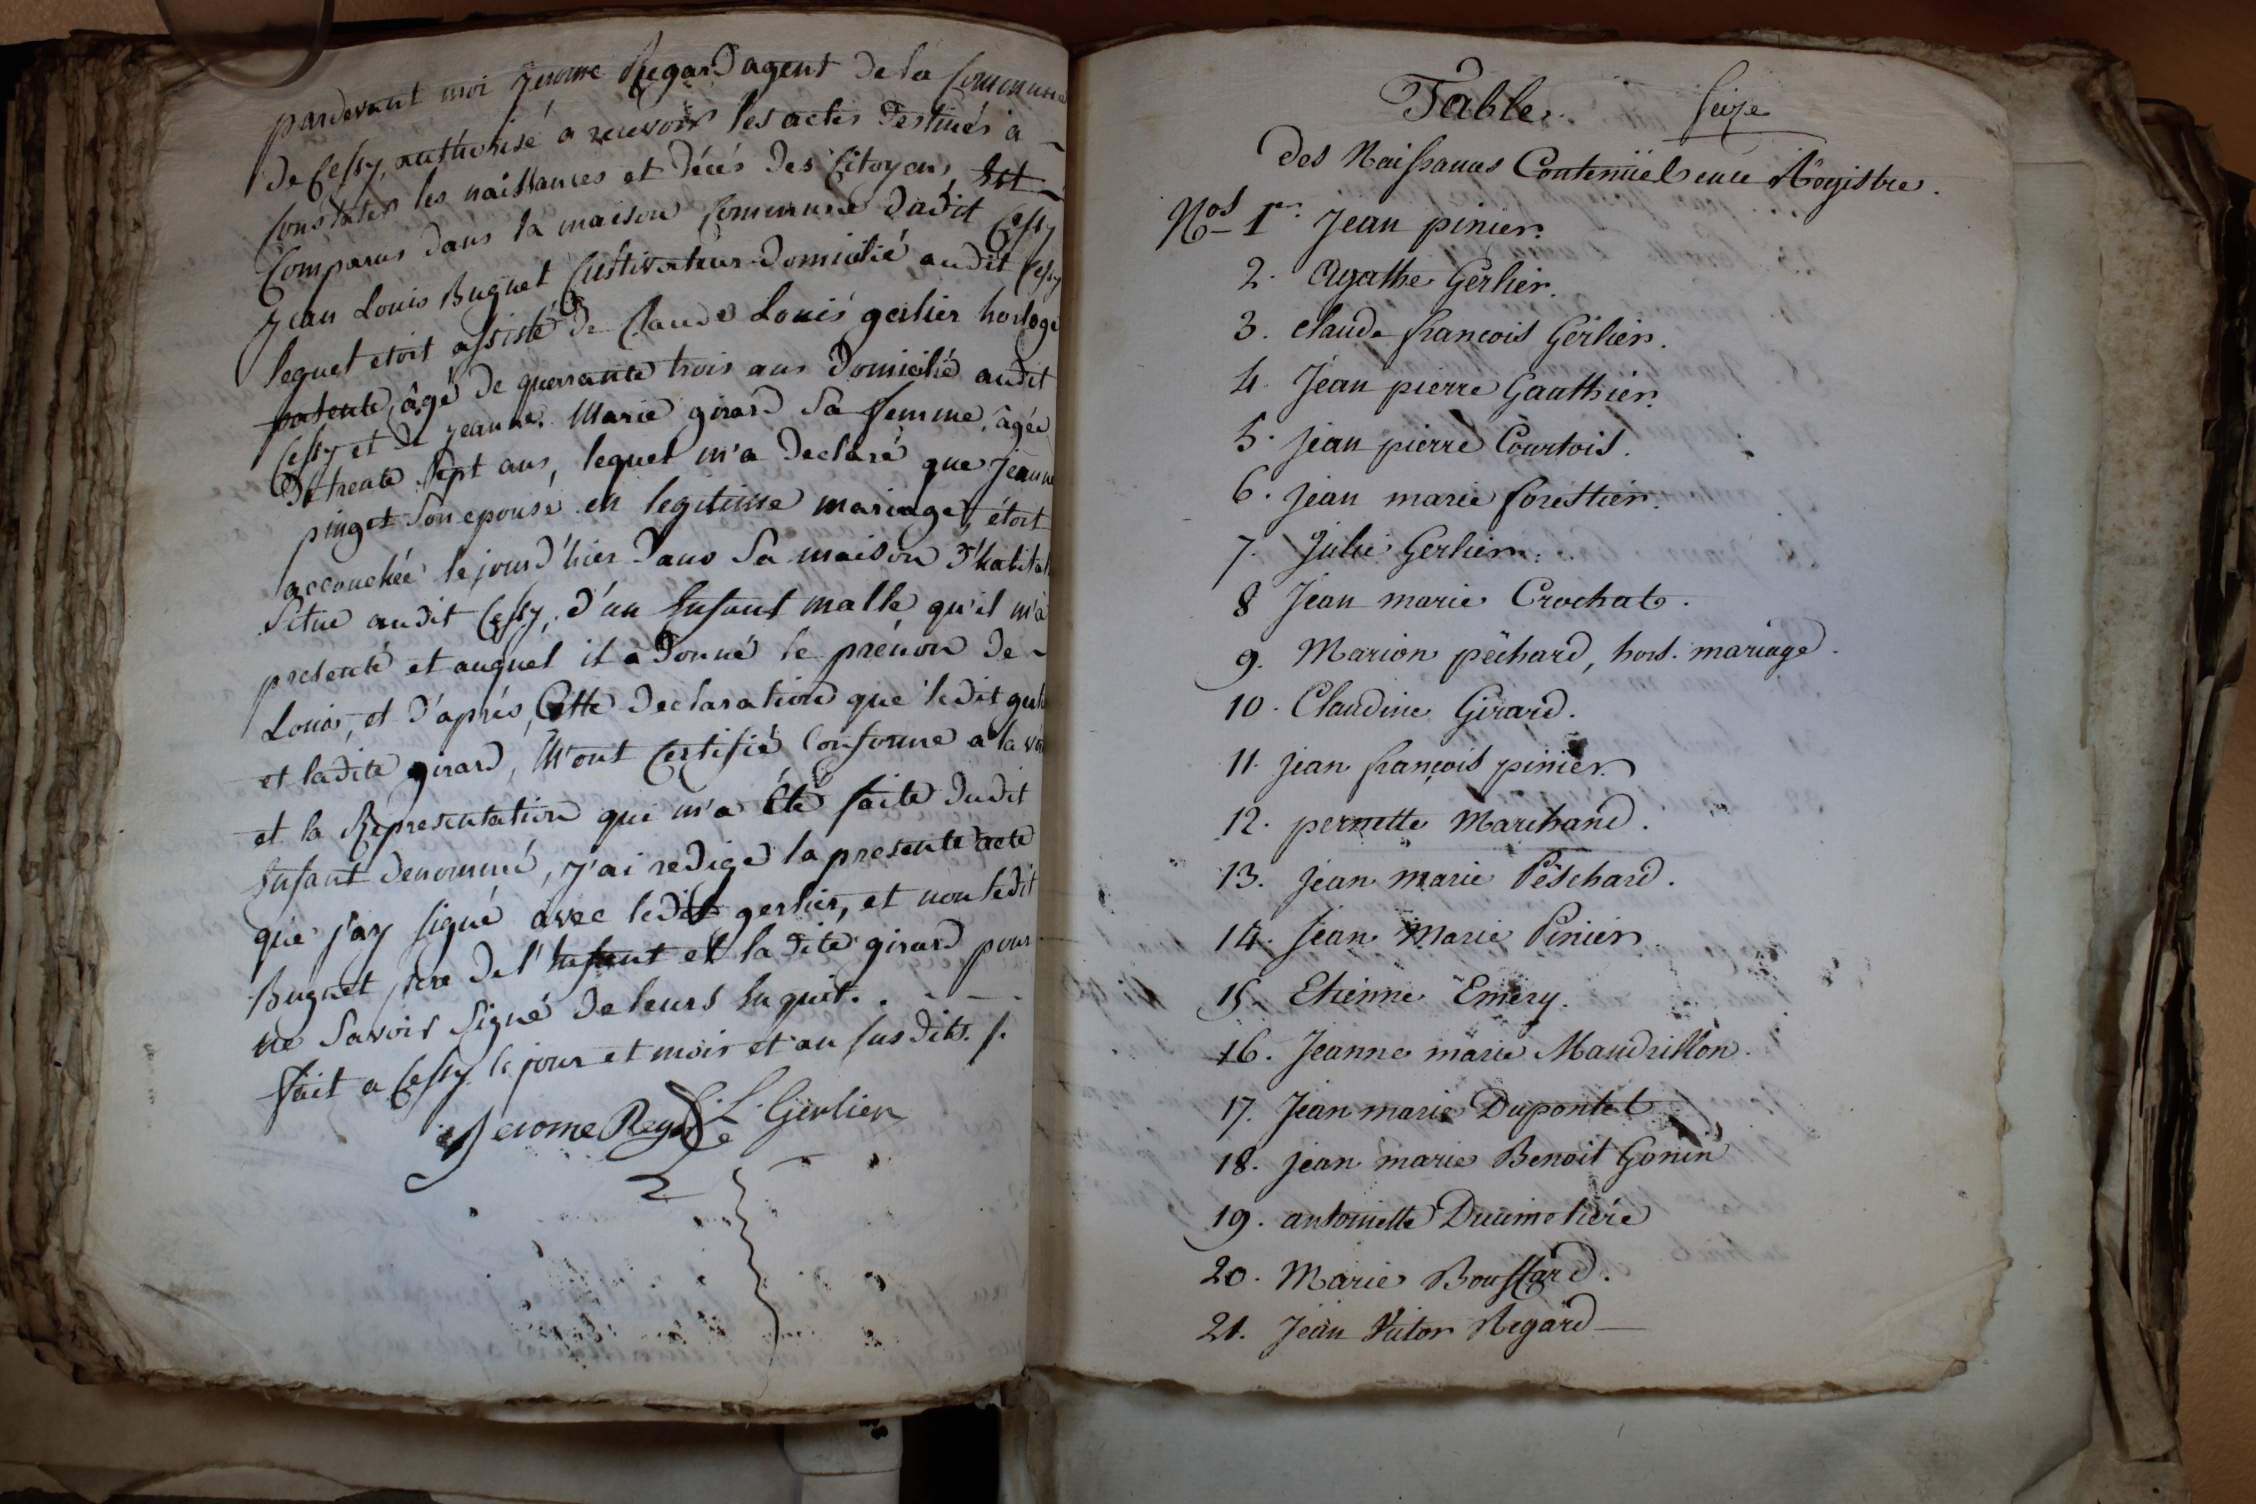 pardevant moi jerome Regard agent de la Commune
de Cessy, authorisé a recevoir les actes destinés a
Constater les naissances et décés des Citoyens, Est
Comparus dans la maison Commune dudit Cessy
Jean Louis Buguet Cultivateur domicilié audit Cessy
lequel etoit assisté de Claude Louis gerlier horloge
patenté, âgé de quarrante trois ans domicilié audit
Cessy et de jeanne Marie girard Sa femme, âgée
de trente Sept ans, lequel m'a declaré que jeanne
pinget Son epouse en legitime mariage, étoit
accouchée le jourd'hier dans Sa maison d'habitat
Situe audit Cessy, d'un Enfant malle qu'il m'a
presenté et auquel il a donné le prénon de
Louis, et d'aprés Cette declaration que ledit gerli
et ladite girard, M'ont Certifié Conforme a la
et la Representation qui m'a Eté faite dudit
Enfant denommé, j'ai redigé la presente acte
que j'ay signé avec ledit gerlier, et non ledit
Buguet pere de l'Enfant et la dite girard pour
ne Savoir Signé de leurs Enquit.
fait a Cessy le jour et mois et an susdits.
Jerome Regard C. L. Gerlier
Table. Seize
des Naissances Contenüe en ce Régistre.
Nos 1er Jean pinier.
2. Agathe Gerlier.
3. Claude francois Gerlier.
4. Jean pierre Gauthier.
5. Jean pierre Courtois.
6. Jean marie forestier.
7. Julie Gerlier.
8 Jean marie Crochat.
9. Marion péchard, hors. mariage.
10. Claudine Girard.
11. Jean françois pinier
12. pernette Marchand.
13. Jean Marie Péschard.
14. Jean Marie Pinier
15. Etienne Emery.
16. Jeanne marie Maudrillon.
17. Jean marie Dupontet
18. Jean marie Benoit Gonin
19. antoinette Ducimetiére
20. Marie Boussard.
21. Jean Victor Regard